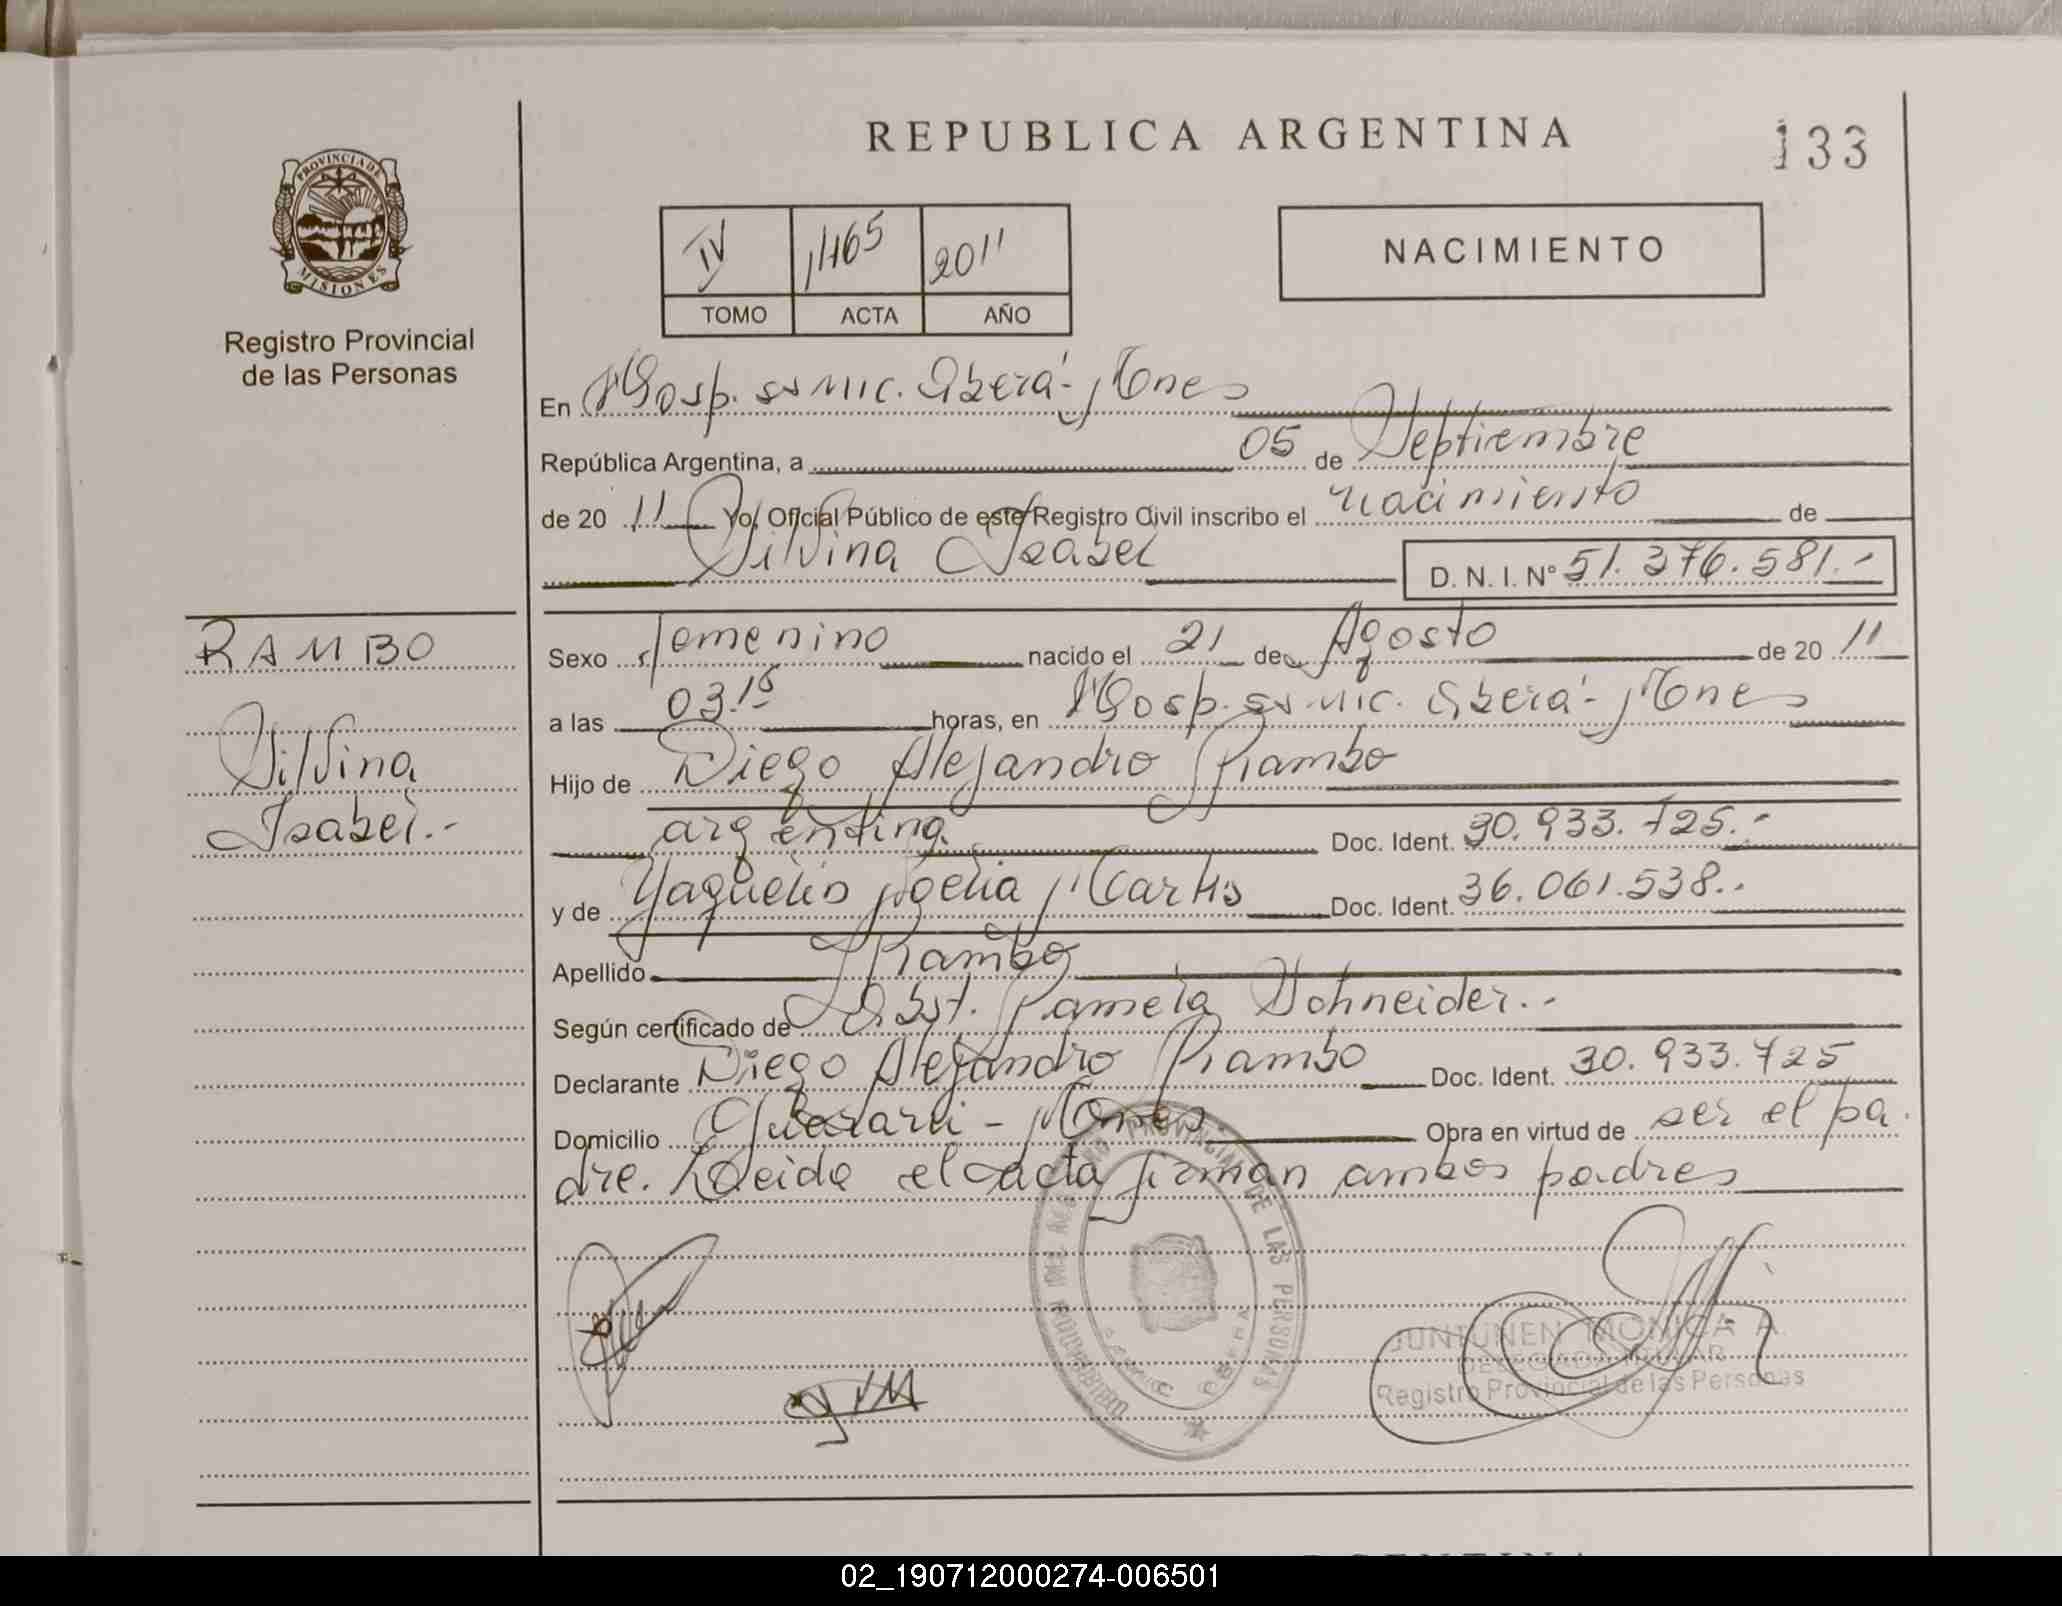 REPUBLICA ARGENTINA
133
PROVINCIA DE
MISIONES
Registro Provincial
de las Personas
IV 1465 2011
TOMO ACTA AÑO
NACIMIENTO
En Hosp. ss mic. Oberá - Mnes
República Argentina, a 05 de Septiembre
de 20 11 Yo, Oficial Público de este Registro Civil inscribo el nacimiento de
Silvina Isabel D. N. I. Nº 51.376.581.-
RAMBO
Silvina
Isabel.-
Sexo Femenino nacido el 21 de Agosto de 20 11
a las 03.15 horas, en Hosp. ss mic. Oberá - Mnes
Hijo de Diego Alejandro Rambo
argentina Doc. Ident. 30.933.725.-
y de Yaquelin Noelia Martis Doc. Ident. 36.061.538.-
Apellido Rambo
Según certificado de Obst. Pamela Schneider.-
Declarante Diego Alejandro Rambo Doc. Ident. 30.933.725
Domicilio Guarani - Mnes. Obra en virtud de ser el pa
dre. Leida el acta firman ambos padres
PROVINCIAL DE LAS PERSONAS
JUNTUNEN MONICA A.
DELEGADA TITULAR
Registro Provincial de las Personas
02_190712000274-006501